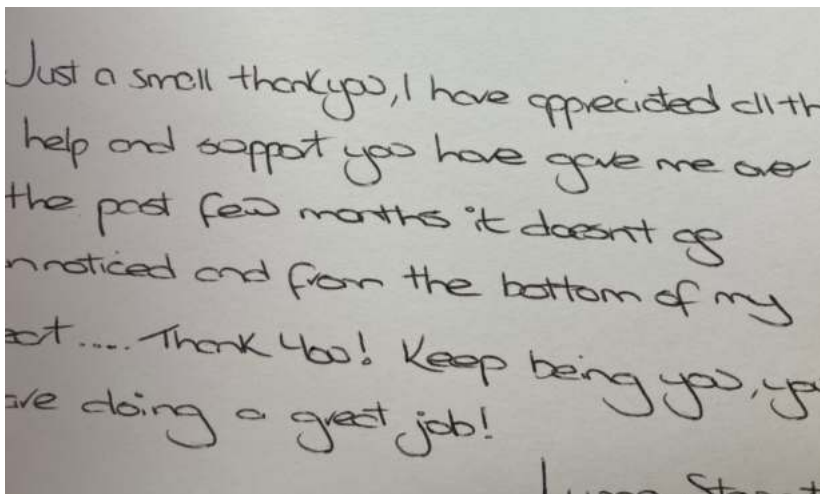 Just a small thankyou, I have appreciated all th
help and support you have gave me over
the past few months it doesnt go
nnoticed and from the bottom of my
eart.... Thank You! Keep being you, you
are doing a great job!